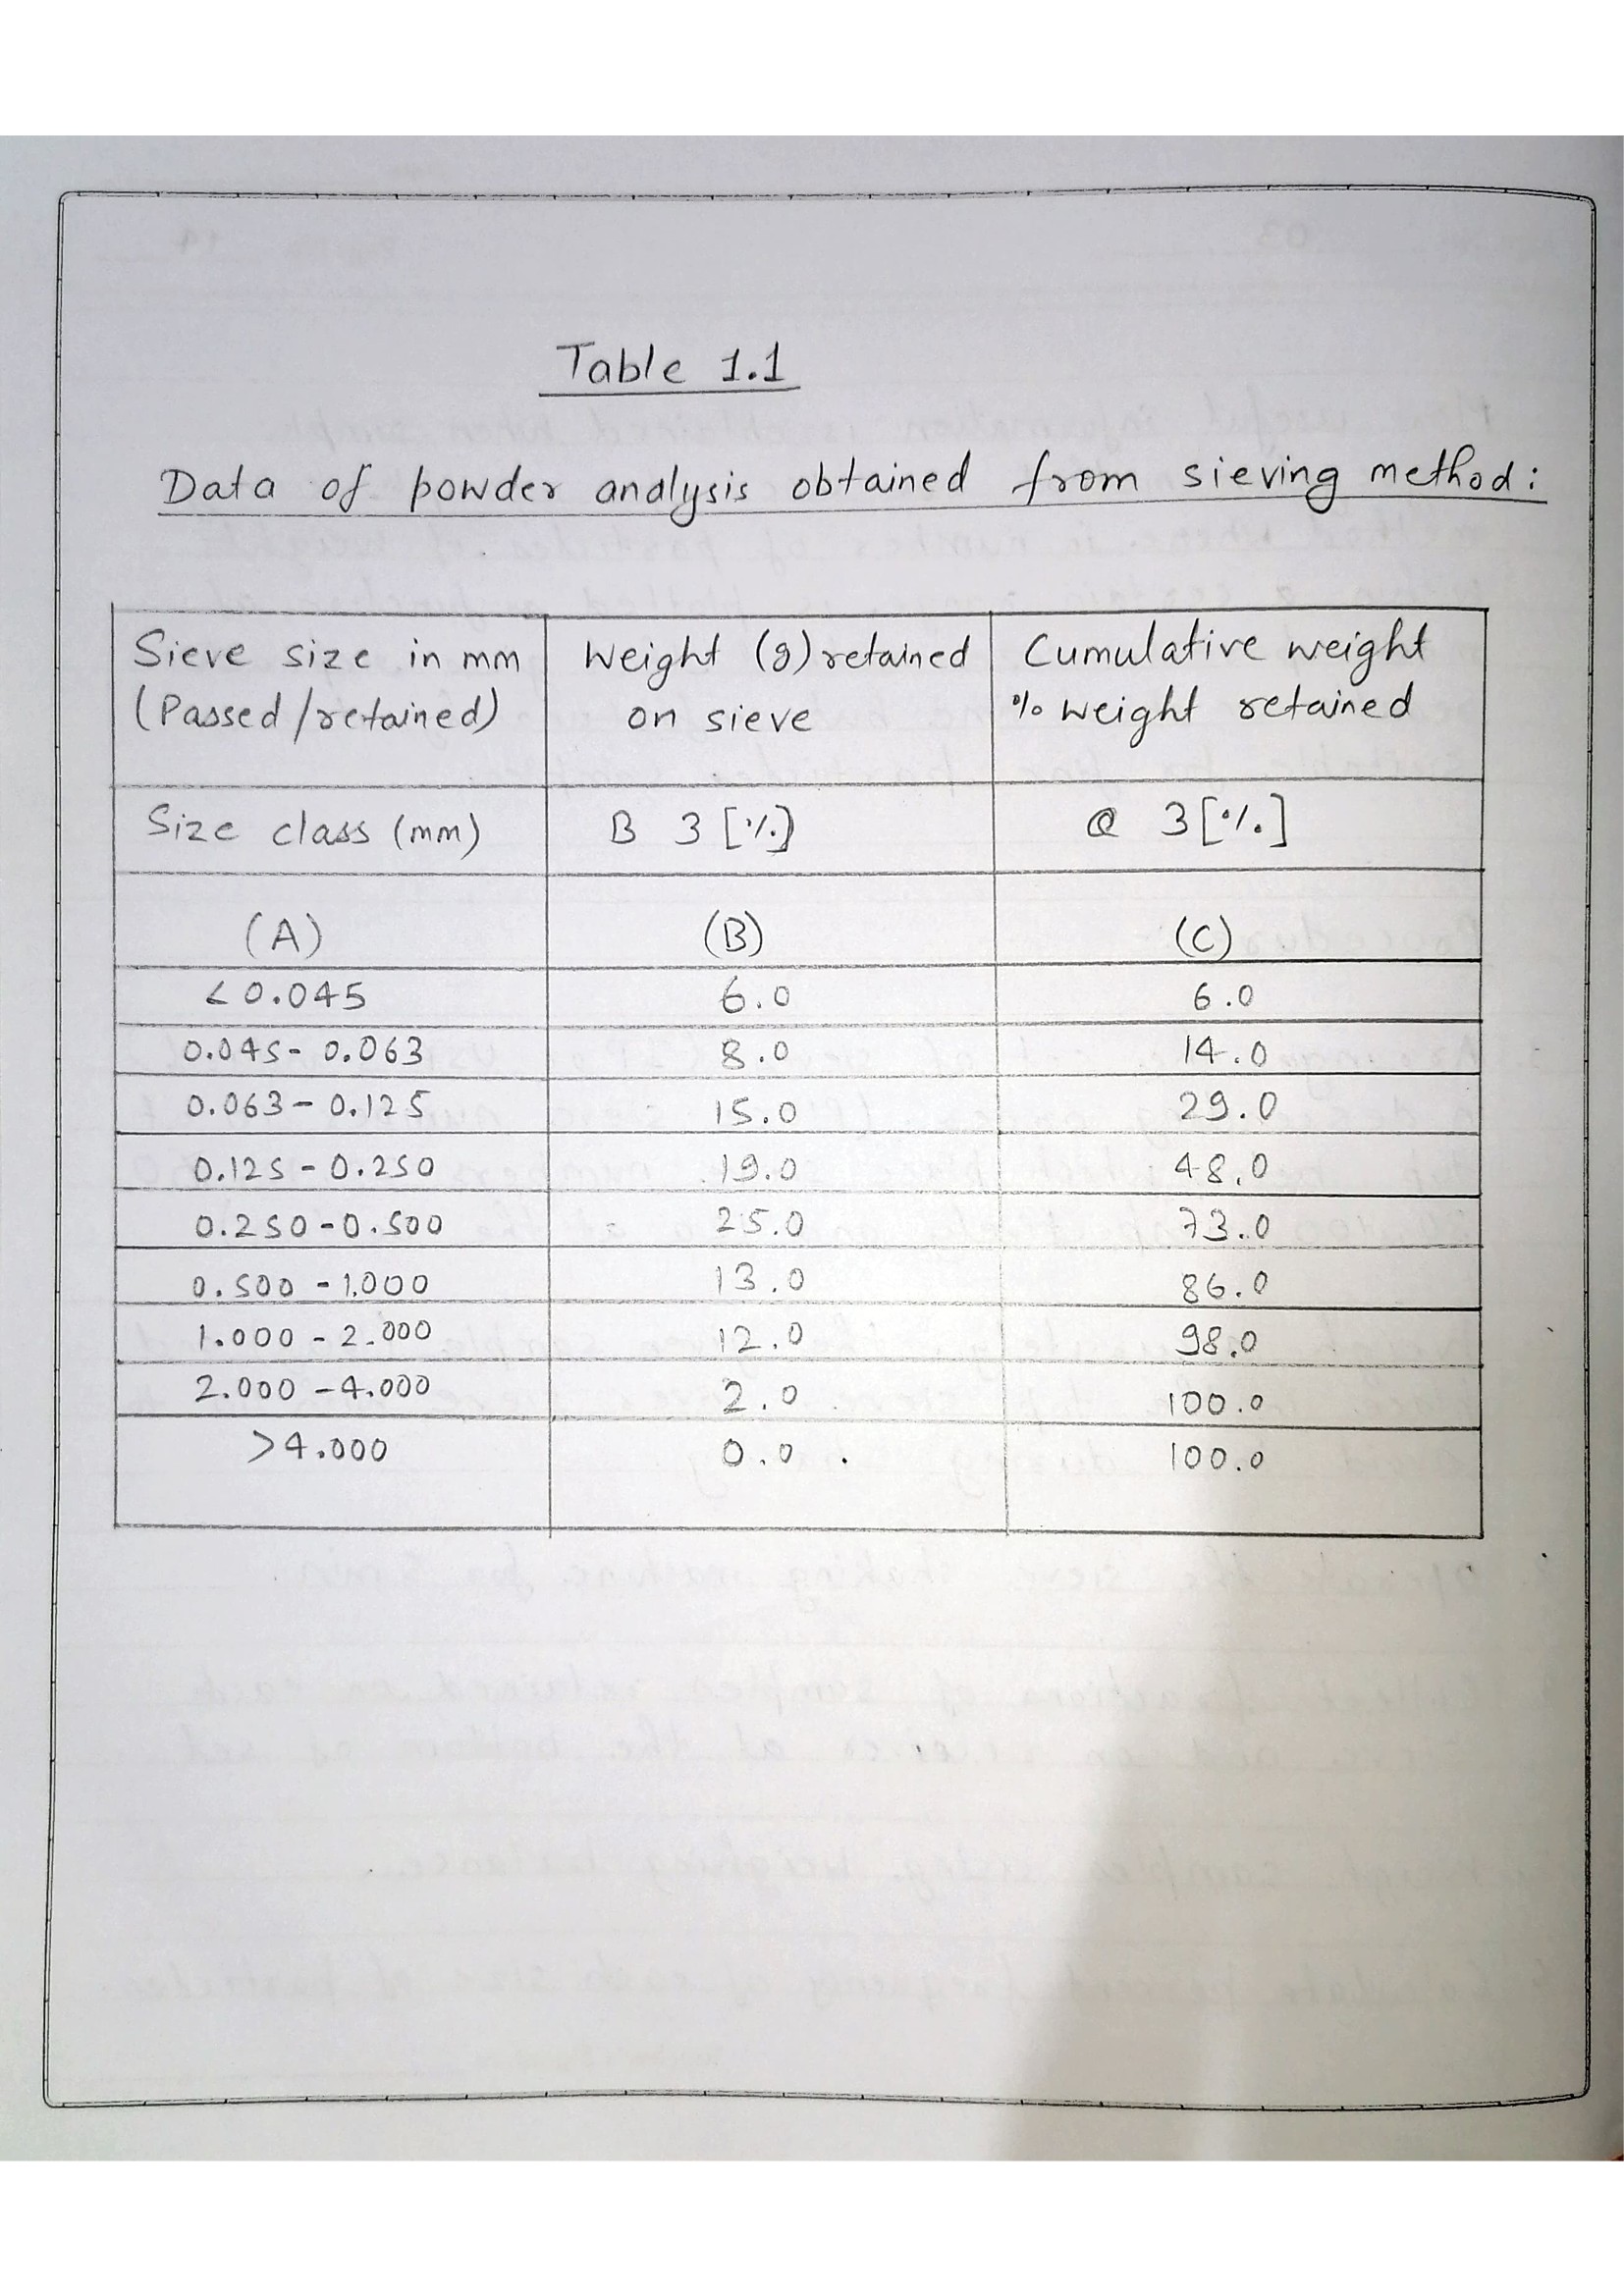 Table 1.1
Data of powder analysis obtained from sieving method:
Sieve size in mm Weight (g) retained Cumulative weight
(Passed/retained) on sieve % weight retained
Size class (mm) B 3 [%] Q 3 [%]
(A) (B) (C)
<0.045 6.0 6.0
0.045-0.063 8.0 14.0
0.063-0.125 15.0 29.0
0.125-0.250 19.0 48.0
0.250-0.500 25.0 73.0
0.500-1.000 13.0 86.0
1.000-2.000 12.0 98.0
2.000-4.000 2.0 100.0
>4.000 0.0 100.0